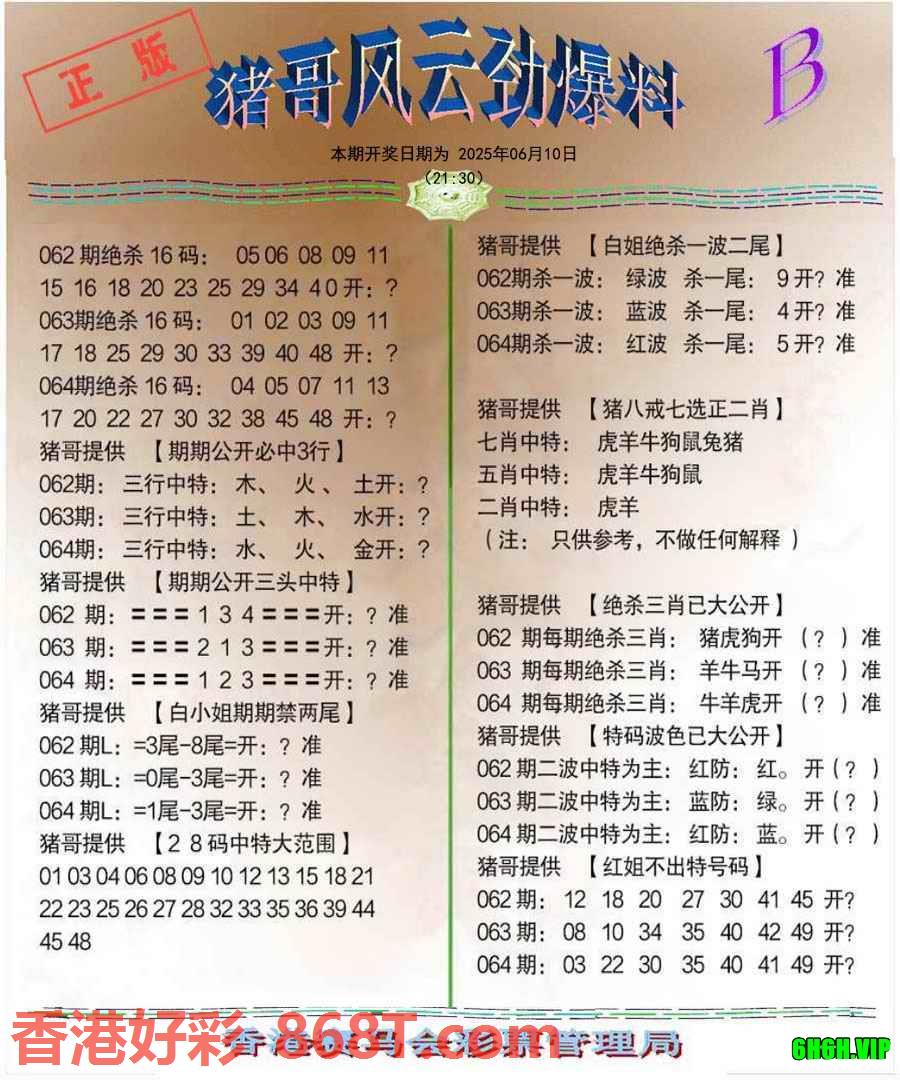 正版
猪哥风云劲爆料
B
本期开奖日期为 2025年06月10日
(21:30)
062期绝杀16码： 05 06 08 09 11
15 16 18 20 23 25 29 34 40开：?
063期绝杀16码： 01 02 03 09 11
17 18 25 29 30 33 39 40 48 开：?
064期绝杀16码： 04 05 07 11 13
17 20 22 27 30 32 38 45 48 开：?
猪哥提供 【期期公开必中3行】
062期：三行中特：木、 火、 土开：?
063期：三行中特：土、 木、 水开：?
064期：三行中特：水、 火、 金开：?
猪哥提供 【期期公开三头中特】
062 期：===1 3 4===开：? 准
063 期：===2 1 3===开：? 准
064 期：===1 2 3===开：? 准
猪哥提供 【白小姐期期禁两尾】
062期L：=3尾-8尾=开：? 准
063期L：=0尾-3尾=开：? 准
064期L：=1尾-3尾=开：? 准
猪哥提供 【28码中特大范围】
01 03 04 06 08 09 10 12 13 15 18 21
22 23 25 26 27 28 32 33 35 36 39 44
45 48
猪哥提供 【白姐绝杀一波二尾】
062期杀一波： 绿波 杀一尾： 9开? 准
063期杀一波： 蓝波 杀一尾： 4开? 准
064期杀一波： 红波 杀一尾： 5开? 准
猪哥提供 【猪八戒七选正二肖】
七肖中特： 虎羊牛狗鼠兔猪
五肖中特： 虎羊牛狗鼠
二肖中特： 虎羊
(注： 只供参考，不做任何解释 )
猪哥提供 【绝杀三肖已大公开】
062 期每期绝杀三肖： 猪虎狗开 (? ) 准
063 期每期绝杀三肖： 羊牛马开 (? ) 准
064 期每期绝杀三肖： 牛羊虎开 (? ) 准
猪哥提供 【特码波色已大公开】
062期二波中特为主：红防：红。开(? )
063期二波中特为主：蓝防：绿。开(? )
064期二波中特为主：红防：蓝。开(? )
猪哥提供 【红姐不出特号码】
062期： 12 18 20 27 30 41 45 开?
063期： 08 10 34 35 40 42 49 开?
064期： 03 22 30 35 40 41 49 开?
香港好彩 868T.com
香港赛马会彩票管理局
6H6H.VIP